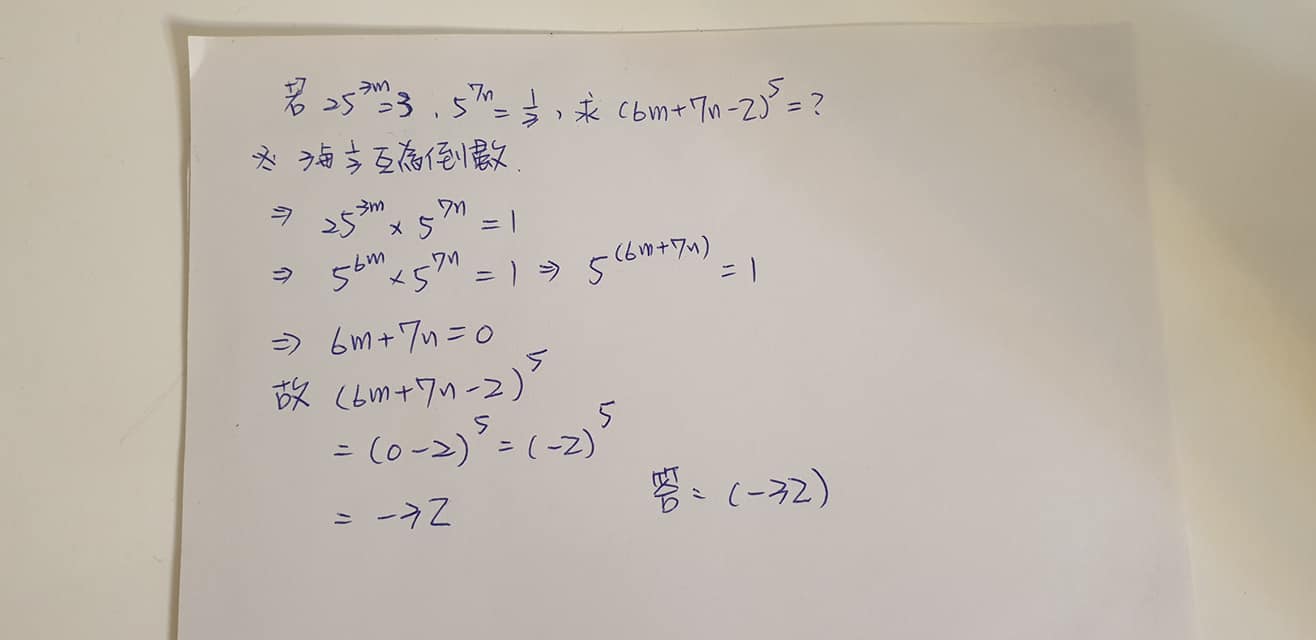 若 25^{3m}=3 , 5^{7n}=1/3 , 求 (6m+7n-2)^5=?
※ 3與1/3互為倒數.
⇒ 25^{3m} × 5^{7n} = 1
⇒ 5^{6m} × 5^{7n} = 1 ⇒ 5^{(6m+7n)} = 1
⇒ 6m+7n=0
故 (6m+7n-2)^5
= (0-2)^5 = (-2)^5
= -32
答= (-32)